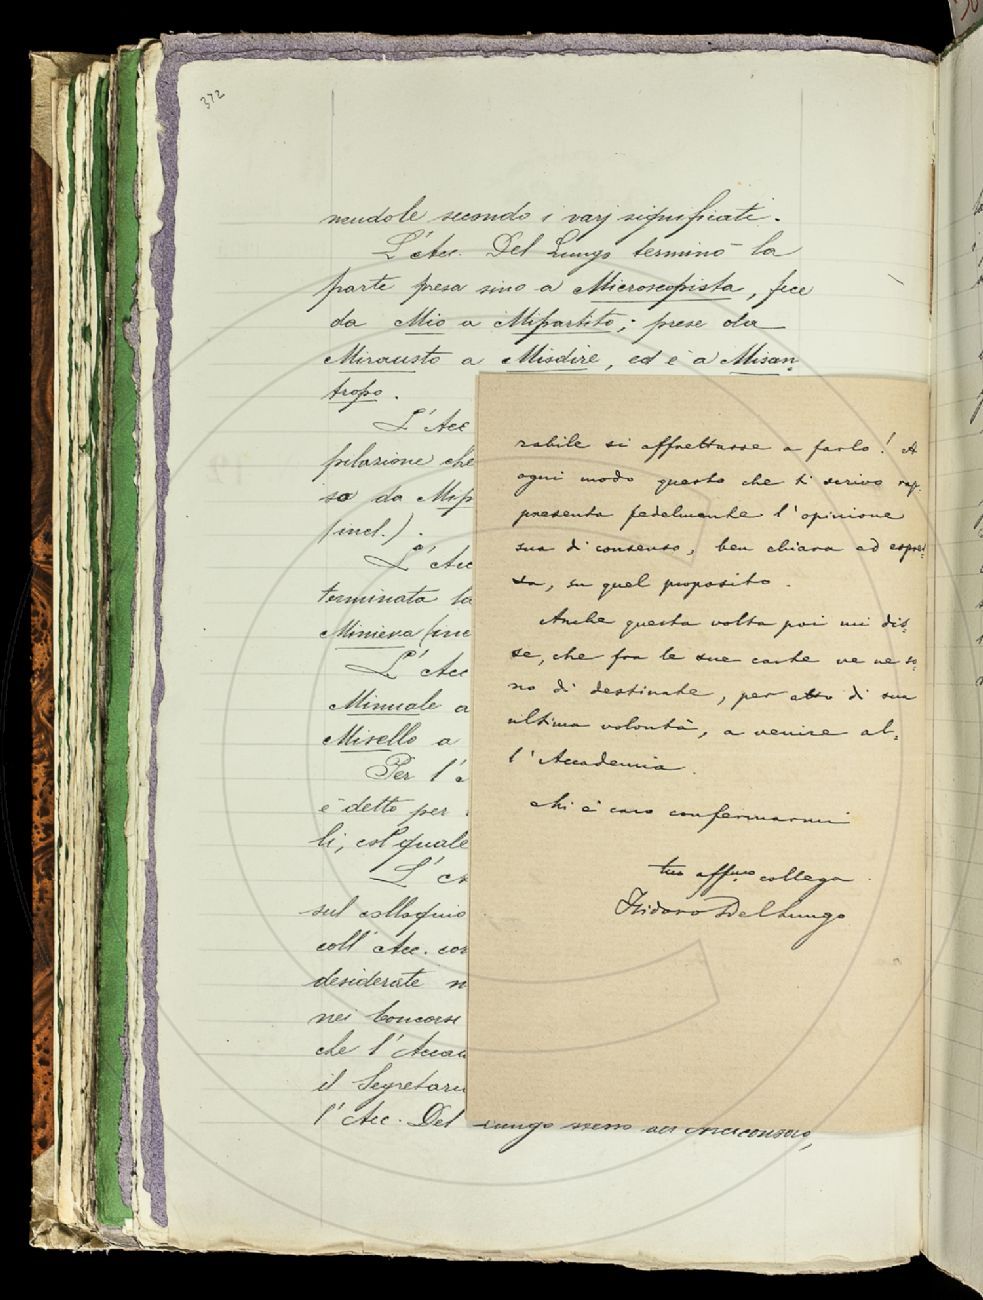 372
nendole secondo i varj significati.
L'Acc. Del Lungo terminò la
parte presa sino a Microscopista, fece
da Mio a Mipartito; prese da
Mirausto a Misdire, ed è a Misan-
tropo.
L'Acc
pilazione che
so da Mip
(incl.).
L'Acc
terminata la
Miniera (inc
L'Acc
Minuale a
Misello a
Per l'a
è detto per
li, col quale
L'
sul colloquio
coll' Acc. cor
desiderate n
nei Concorsi
che l'Accad
il Segretari
l'Acc. Del Lungo
rabile si affrettasse a farlo! A
ogni modo questo che ti scrivo rap-
presenta fedelmente l'opinione
sua di consenso, ben chiara ed espres-
sa, su quel proposito.
Anche questa volta poi mi dis-
se, che fra le sue carte ve ne so-
no di destinate, per atto di sua
ultima volontà, a venire al-
l'Accademia.
Mi è caro confermarmi
tuo affmo collega
Isidoro Del Lungo